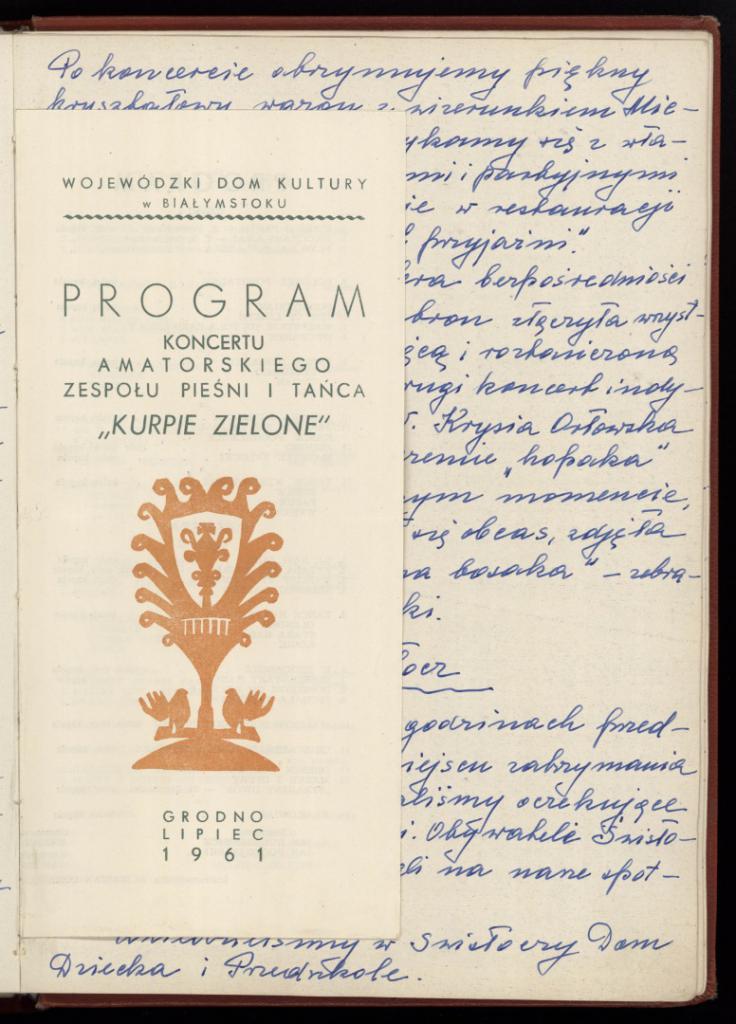 Po koncercie otrzymujemy piękny
kryształowy wazon z wizerunkiem Mic-
ykamy się z wła-
mi i partyjnymi
ie w restauracji
przyjaźni."
era bezpośredniości
bron złączyła wszyst-
cą i roztańczoną
rugi koncert indy-
Krysia Orłowska
zenie "hopaka"
nym momencie,
się obcas, zdjęła
na bosaka" – zebra-
ki.
łocz
godzinach przed-
iejscu zatrzymania
aliśmy oczekujące
i. Obywatele Świsło-
li na nasze spot-
w Swisłoczy Dom
Dziecka i Przedszkole.
WOJEWÓDZKI DOM KULTURY
w BIAŁYMSTOKU
PROGRAM
KONCERTU
AMATORSKIEGO
ZESPOŁU PIEŚNI I TAŃCA
„KURPIE ZIELONE"
GRODNO
LIPIEC
1961